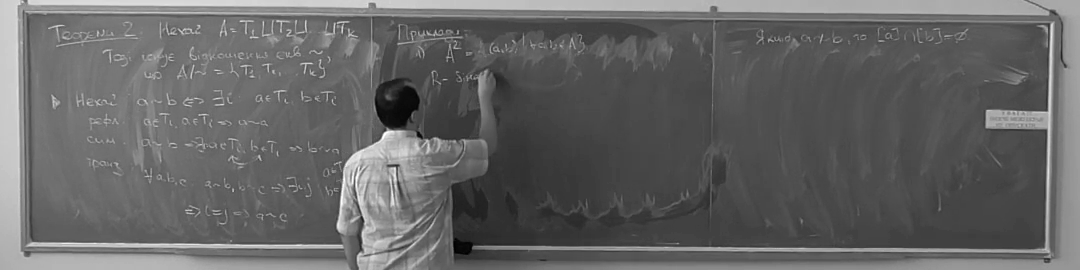 Теорема 2. Нехай A = T₁ ⊔ T₂ ⊔ … ⊔ Tk
Тоді існує відношення екв ~,
що A/~ = {T₁, T₂, … Tk}
▶ Нехай a~b ⇔ ∃i: a∈Tᵢ, b∈Tᵢ
рефл. a∈Tᵢ, a∈Tᵢ ⇒ a~a
сим. a~b ⇒ a∈Tᵢ, b∈Tᵢ ⇒ b~a
транз ∀a,b,c a~b, b~c ⇒ ∃i,j
⇒ i=j ⇒ a~c
Приклади:
1) A² = {(a,b) | a,b∈A}
R – бінар
Якщо a≁b, то [a]∩[b]=∅
УВАГА!